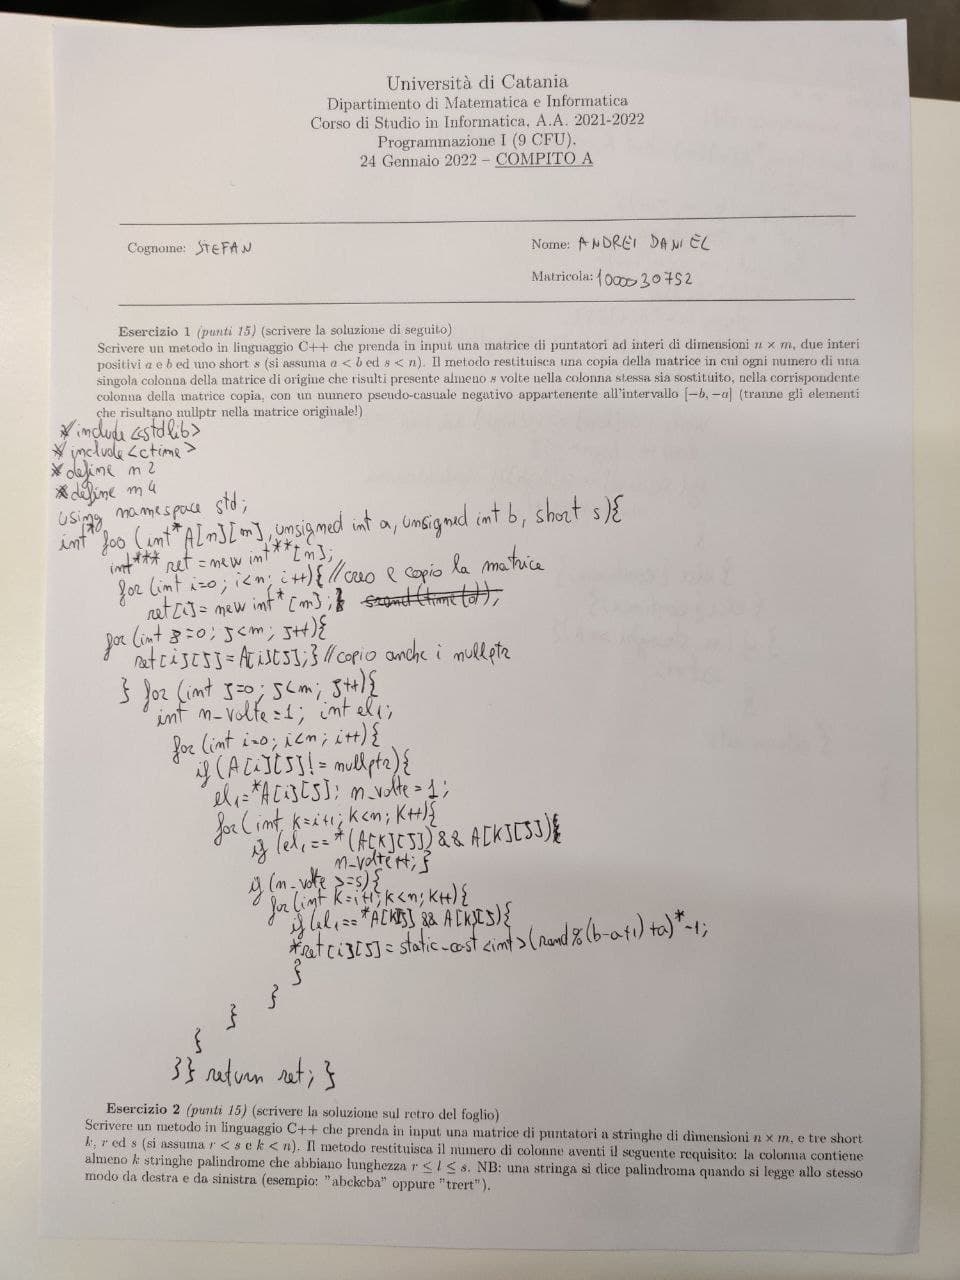 Università di Catania
Dipartimento di Matematica e Informatica
Corso di Studio in Informatica, A.A. 2021-2022
Programmazione I (9 CFU).
24 Gennaio 2022 – COMPITO A
Cognome: STEFAN
Nome: ANDREI DANIEL
Matricola: 1000030752
Esercizio 1 (punti 15) (scrivere la soluzione di seguito)
Scrivere un metodo in linguaggio C++ che prenda in input una matrice di puntatori ad interi di dimensioni n × m, due interi
positivi a e b ed uno short s (si assuma a < b ed s < n). Il metodo restituisca una copia della matrice in cui ogni numero di una
singola colonna della matrice di origine che risulti presente almeno s volte nella colonna stessa sia sostituito, nella corrispondente
colonna della matrice copia, con un numero pseudo-casuale negativo appartenente all'intervallo [−b, −a] (tranne gli elementi
che risultano nullptr nella matrice originale!)
#include <cstdlib>
#include <ctime>
#define n 2
#define m 4
using namespace std;
int* foo (int* A[n][m], unsigned int a, unsigned int b, short s){
int*** ret = new int**[n];
for (int i=0; i<n; i++){ //creo e copio la matrice
ret[i] = new int*[m]; } srand(time(0));
for (int j=0; j<m; j++){
ret[i][j] = A[i][j]; } //copio anche i nullptr
} for (int j=0; j<m; j++){
int n_volte = 1; int el1;
for (int i=0; i<n; i++){
if (A[i][j] != nullptr){
el1 = *A[i][j]; n_volte = 1;
for (int k=i+1; k<n; k++){
if (el1 == *(A[k][j]) && A[k][j]){
n_volte++; }
if (n_volte >= s){
for (int k=i+1; k<n; k++){
if (el1 == *A[k][j] && A[k][j]){
*ret[i][j] = static_cast <int> (rand%(b-a+1)+a)*-1;
}
}
}
}
}} return ret; }
Esercizio 2 (punti 15) (scrivere la soluzione sul retro del foglio)
Scrivere un metodo in linguaggio C++ che prenda in input una matrice di puntatori a stringhe di dimensioni n × m, e tre short
k, r ed s (si assuma r < s e k < n). Il metodo restituisca il numero di colonne aventi il seguente requisito: la colonna contiene
almeno k stringhe palindrome che abbiano lunghezza r ≤ l ≤ s. NB: una stringa si dice palindroma quando si legge allo stesso
modo da destra e da sinistra (esempio: "abckcba" oppure "trert").